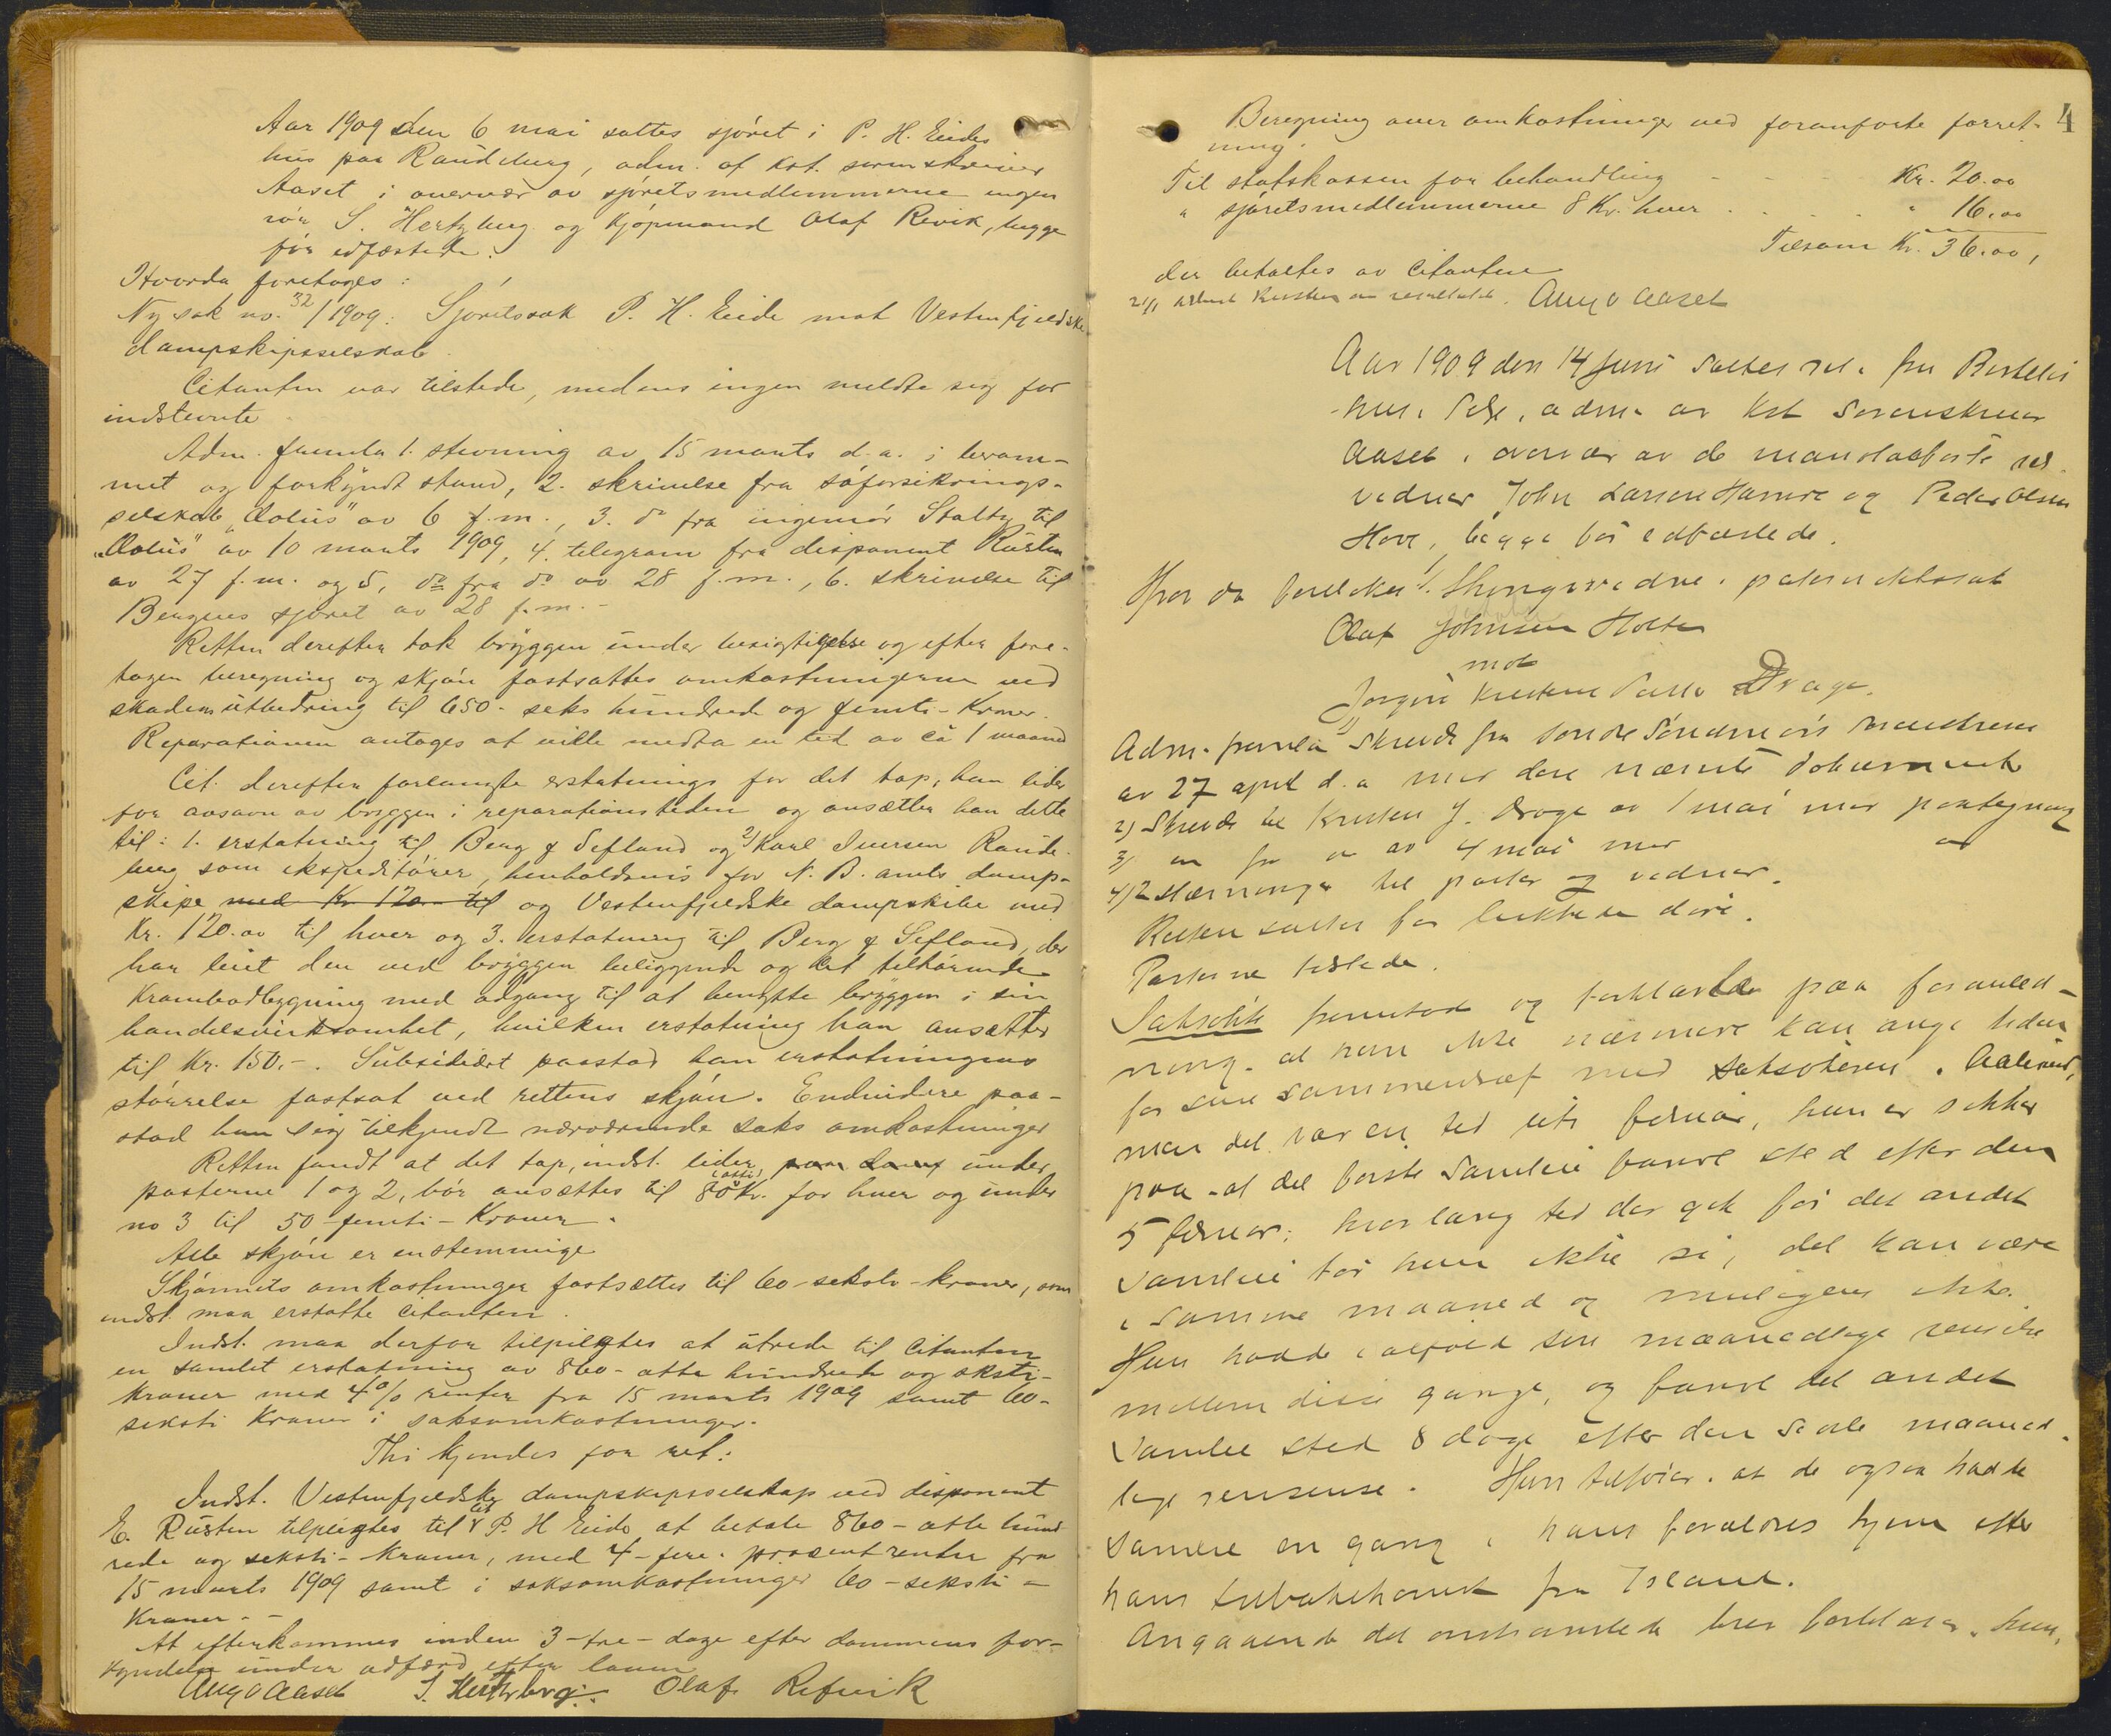 Aar 1909 den 6 mai sattes sjöret i P. H. Eides
hus paa Raudeberg, adm. af kst. sorenskriver
Aaset i overvær av sjöretsmedlemmerne ingen
iör S. Hertzberg og kjöpmand Olaf Revik, begge
för edfæstede.
Hvorda foretoges:
Ny sak no. 32/1909: Sjöretssak P. H. Eide mot Vestenfjeldske
dampskipsselskab.
Citanten var tilstede, medens ingen meldte sig for
indstevnte.
Adm. fremla 1. stevning av 15 marts d.a. i beram-
met og forkyndt stand, 2. skrivelse fra söforsikrings-
selskab "Æolus" av 6 f.m., 3. do fra ingeniör Stoltz til
"Æolus" av 10 marts 1909, 4. telegram fra disponent Rusten
av 27 f.m. og 5, do fra do av 28 f.m., 6. skrivelse til
Bergens sjöret av 28 f.m.-
Retten derefter tok bryggen under besigtigelse og efter fore-
tagen beregning og skjön fastsattes omkostningerne ved
skadens utbedring til 650- seks hundrede og femti- Kroner.
Reparationen antages at ville medta en tid av ca 1 maaned
Cit. derefter forlangte erstatnings for det tap, han lider
for avsavn av bryggen i reparationstiden og ansætter han dette
til: 1. erstatning til Berg & Sefland og 2) Karl Iversen Raude-
berg som ekspeditörer, henholdsvis for N. B. amts damp-
skipe med Kr 120.- til og Vestenfjeldske dampskibe med
Kr. 120.00 til hver og 3. erstatning til Berg & Sefland, der
har leiet den ved bryggen beliggende og det tilhörende
Krambodbygning med adgang til at benytte bryggen i sin
handelsvirksomhet, hvilken erstatning han ansætter
til Kr. 150.-. Subsidiært paastod han erstatningens
störrelse fastsat ved rettens skjön. Endvidere paa-
stod han sig tilkjendt nærværende saks omkostninger
Retten fandt at det tap, indst. lider under
posterne 1 og 2, bör ansættes til 80 (otti) Kr. for hver og under
no 3 til 50 - femti - Kroner.
Alle skjön er enstemmige
Skjönnets omkostninger fastsættes til 60 - seksti - kroner, som
indst. maa erstatte citanten.
Indst. maa derfor tilpligtes at utrede til Citanten
en samlet erstatning av 860 - otte hundrede og seksti-
kroner med 4% renter fra 15 marts 1909 samt 60-
seksti Kroner i saksomkostninger.
Thi kjendes for ret:
Indst. Vestenfjeldske dampskipsselskap ved disponent
E. Rusten tilpligtes til P. H Eide at betale 860 - otte hund-
rede og seksti - Kroner, med 4 - fire - prosent renter fra
15 marts 1909 samt i saksomkostninger 60 - seksti -
Kroner.-
At efterkommes inden 3 - tre - dage efter dommens for-
kyndelse under adfærd efter loven
Aug O Aaset S. Hertzberg. Olaf Refvik
4
Beregning over omkostninger ved foranförte forret-
ning.
Til statskassen for behandling - - - Kr. 20.00
" sjöretsmedlemmerne 8 Kr. hver . . . . " 16.00
Tilsam Kr. 36.00,
der betaltes av Citanten
Aug O Aaset
Aar 1909 den 14 Juni sattes ret i fru Bertelsens
hus i Selje, adm. av kst sorenskriver
Aaset i overvær av de mandtalförte ret-
vidner John Larsen Hamre og Peder Olsen
Hove, begge för edfæstede.
Hvor da foretokes Thingsvidne i paternitetssak
Olaf Johnsen Holten
mot
Jorgine Kristine Drage.
Adm. fremla 1) Skrivelse fra Söndre Söndmörs sorenskriveri
av 27 april d.a med deri nævnte dokumenter
2) Skrivelse til Kristen J. Drage av 1 mai med paategning
3) do fra do av 4 mai med do
4) 2 stævninger til parter og vidner.
Retten sattes for lukkede döre.
Parterne tilstede.
Saksökte fremstod og forklarte paa foranled-
ning at hun ikke nærmere kan angi tiden
for sine sammentræf med saksökeren i Aalesund,
men det var en tid uti februar, hun er sikker
paa at det förste samleie fandt sted efter den
5 februar; hvor lang tid der gik för det andet
samleie tör hun ikke si, det kan være
i samme maaned og muligens ikke.
Hun hadde i alfald sin maanedlige renselse
mellem disse gange, og fandt det andet
samleie sted 8 dage efter den sidste maaned-
lige renselse. Hun tilföier at de ogsaa hadde
samleie en gang i hans forældres hjem efter
hans tilbakekomst fra Island.
Angaaende det omhandlede brev forklarer hun,